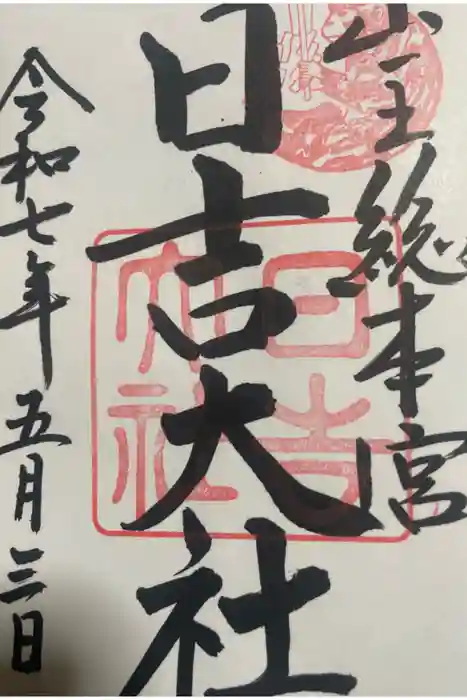 山王総本宮
日吉大社
令和七年五月三日
日吉大社